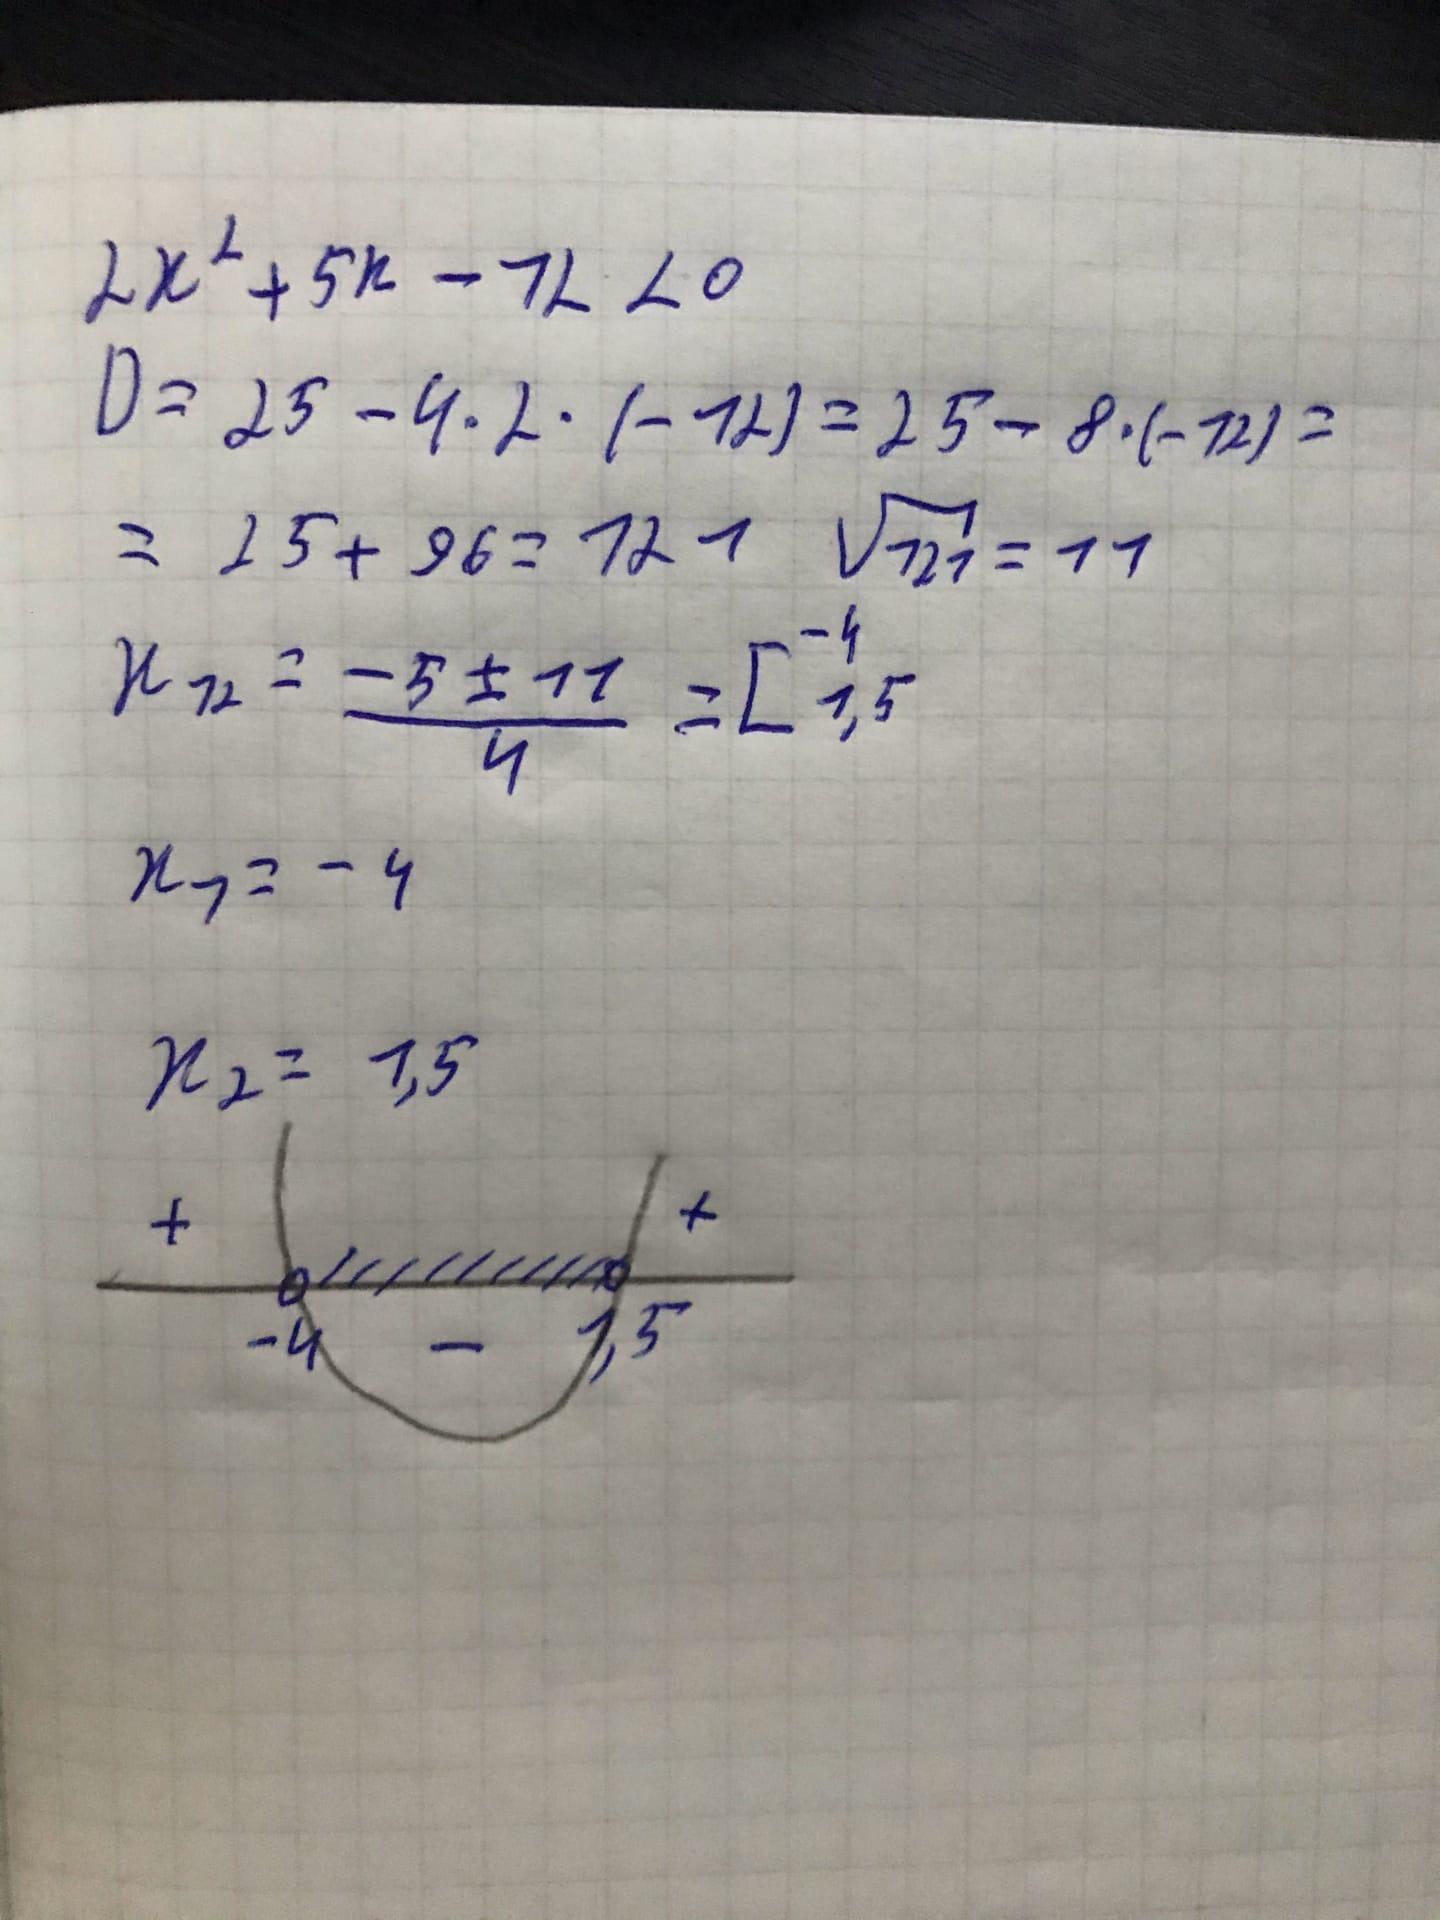 2x² + 5x - 12 < 0
D = 25 - 4 · 2 · (-12) = 25 - 8 · (-12) =
= 25 + 96 = 121 √121 = 11
x₁₂ = (-5 ± 11)/4 = [ -4 1,5
x₁ = -4
x₂ = 1,5
+ +
-4 - 1,5